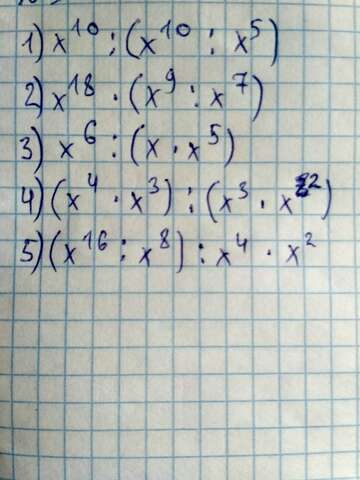 1) x¹⁰ : (x¹⁰ : x⁵)
2) x¹⁸ · (x⁹ : x⁷)
3) x⁶ : (x · x⁵)
4) (x⁴ · x³) : (x³ · x²)
5) (x¹⁶ : x⁸) : x⁴ · x²